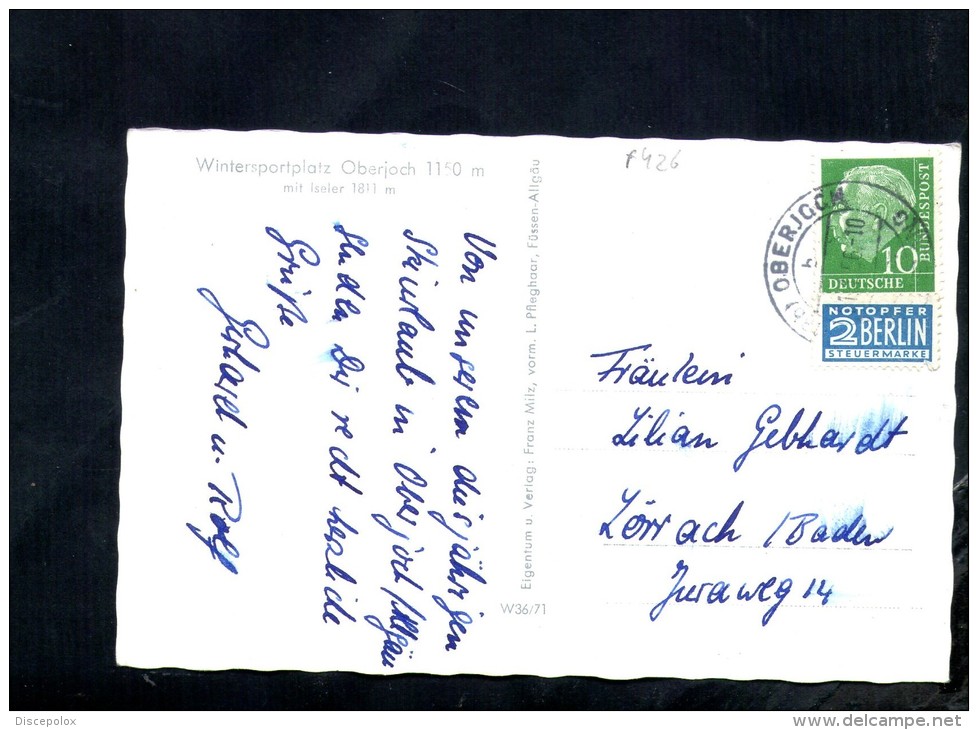 Wintersportplatz Oberjoch 1150 m
mit Iseler 1811 m
f426
Von unserem diesjährigen
Skiurlaub in Oberjoch/Allgäu
senden Dir recht herzliche
Grüße
Gerhard u. Rolf
Eigentum u. Verlag: Franz Milz, vorm. L. Pfleghaar, Füssen-Allgäu
W36/71
OBERJOCH
b
10
10
DEUTSCHE
BUNDESPOST
NOTOPFER
2 BERLIN
STEUERMARKE
Fräulein
Lilian Gebhardt
Lörrach /Baden
Juraweg 14
Discepolox
www.delcampe.net